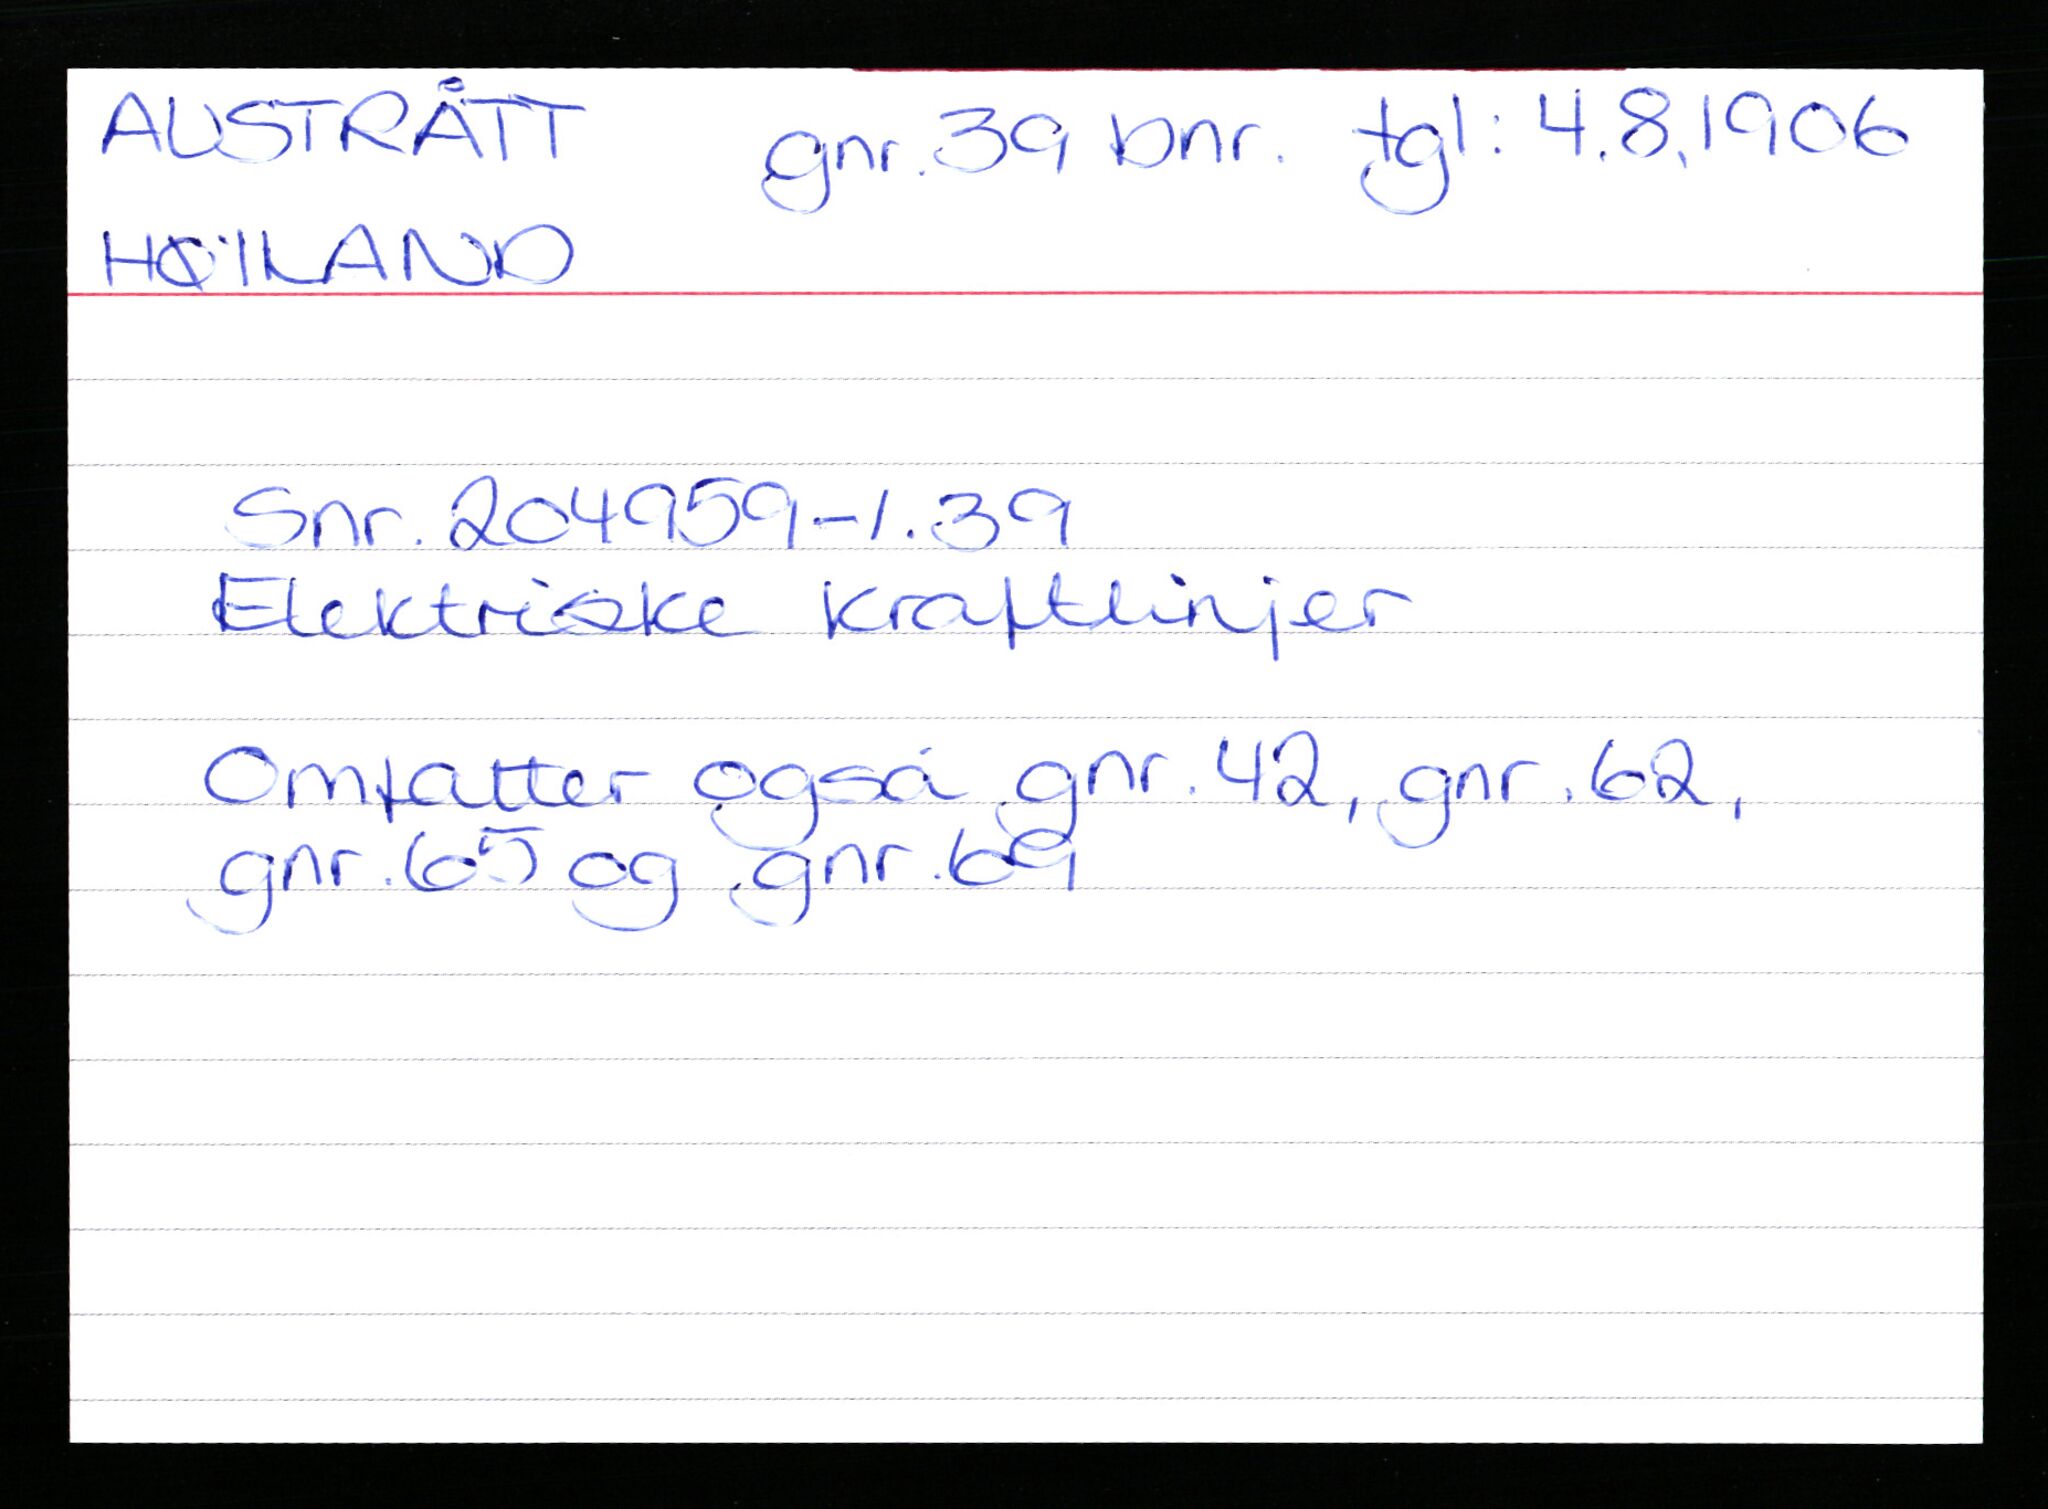 AUSTRÅTT gnr. 39 bnr. tgl: 4.8.1906
HØILAND
Snr. 204959-1.39
Elektriske kraftlinjer
Omfatter også gnr. 42, gnr. 62,
gnr. 65 og gnr. 69